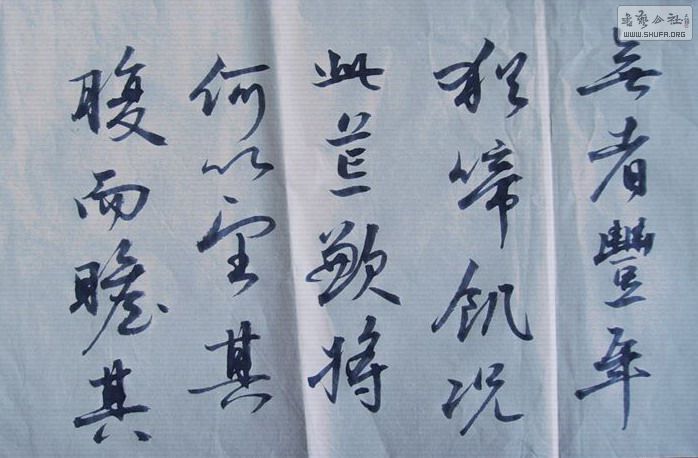 無者豐年
猶啼飢况
此荒歉將
何以實其
腹而瞻其
書藝公社
WWW.SHUFA.ORG